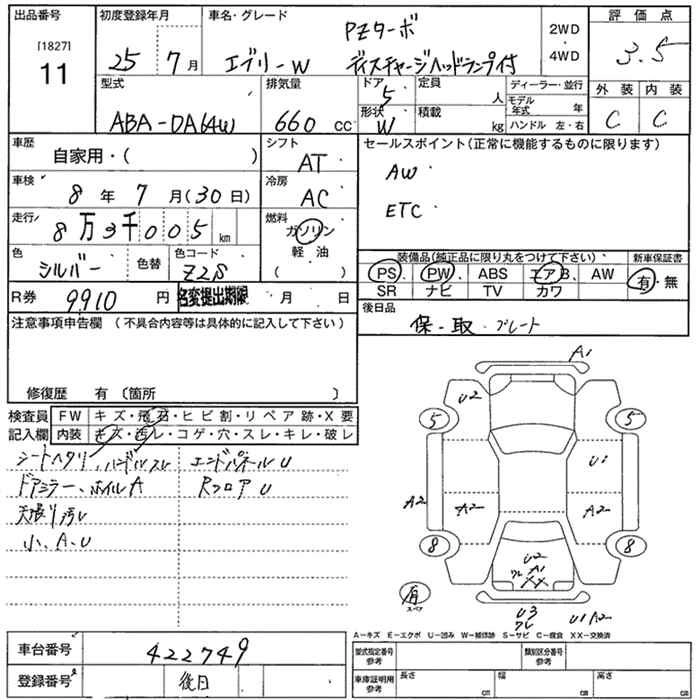 出品番号 初度登録年月 車名・グレード 評価点
[1827]
11
25 7月 エブリーW PZターボ
ディスチャージヘッドランプ付
2WD
4WD
3.5
型式 排気量 ドア 定員 ディーラー・並行 外装 内装
ABA-DA64W 660cc 5 人 モデル年式 年
形状 積載 ハンドル 左・右
W kg C C
車歴 シフト セールスポイント(正常に機能するものに限ります)
自家用・( ) AT
AW
車検 冷房
8年7月(30日) AC
ETC
走行 燃料
8万3千005km ガソリン
軽油
( )
色 色替 色コード
シルバー Z2S
装備品(純正品に限り丸をつけて下さい) 新車保証書
PS PW ABS エアB AW 有・無
SR ナビ TV カワ
R券 9910円 名変提出期限 月 日
後日品
保・取・プレート
注意事項申告欄(不具合内容等は具体的に記入して下さい)
修復歴 有 〔箇所 〕
検査員 FW キズ・飛石・ヒビ割・リペア跡・X要
記入欄 内装 キズ・汚レ・コゲ・穴・スレ・キレ・破レ
シートヘタリ、ハンドルスレ エンドパネルU
ドアミラー、ホイルA RフロアU
天張り汚レ
小、A、U
A1
U2
5 5
U1
A2 A2 A2
8 8
U2
A1
XX
有
スペア
U3 U1 A2
A-キズ E-エクボ U-凹み W-補修跡 S-サビ C-腐食 XX-交換済
車台番号 422749
型式指定番号 参考 類別区分番号 参考
登録番号 後日
車庫証明用 参考 長さ cm 幅 cm 高さ cm